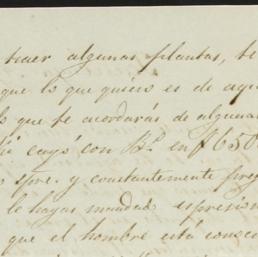 traer algunas plantas, te
que lo que quiero es de aqui
lo que te acordarás de algunas
cayó con en 650
spre. y constantemente preg
le hayas mandado espresion
que el hombre está conoci